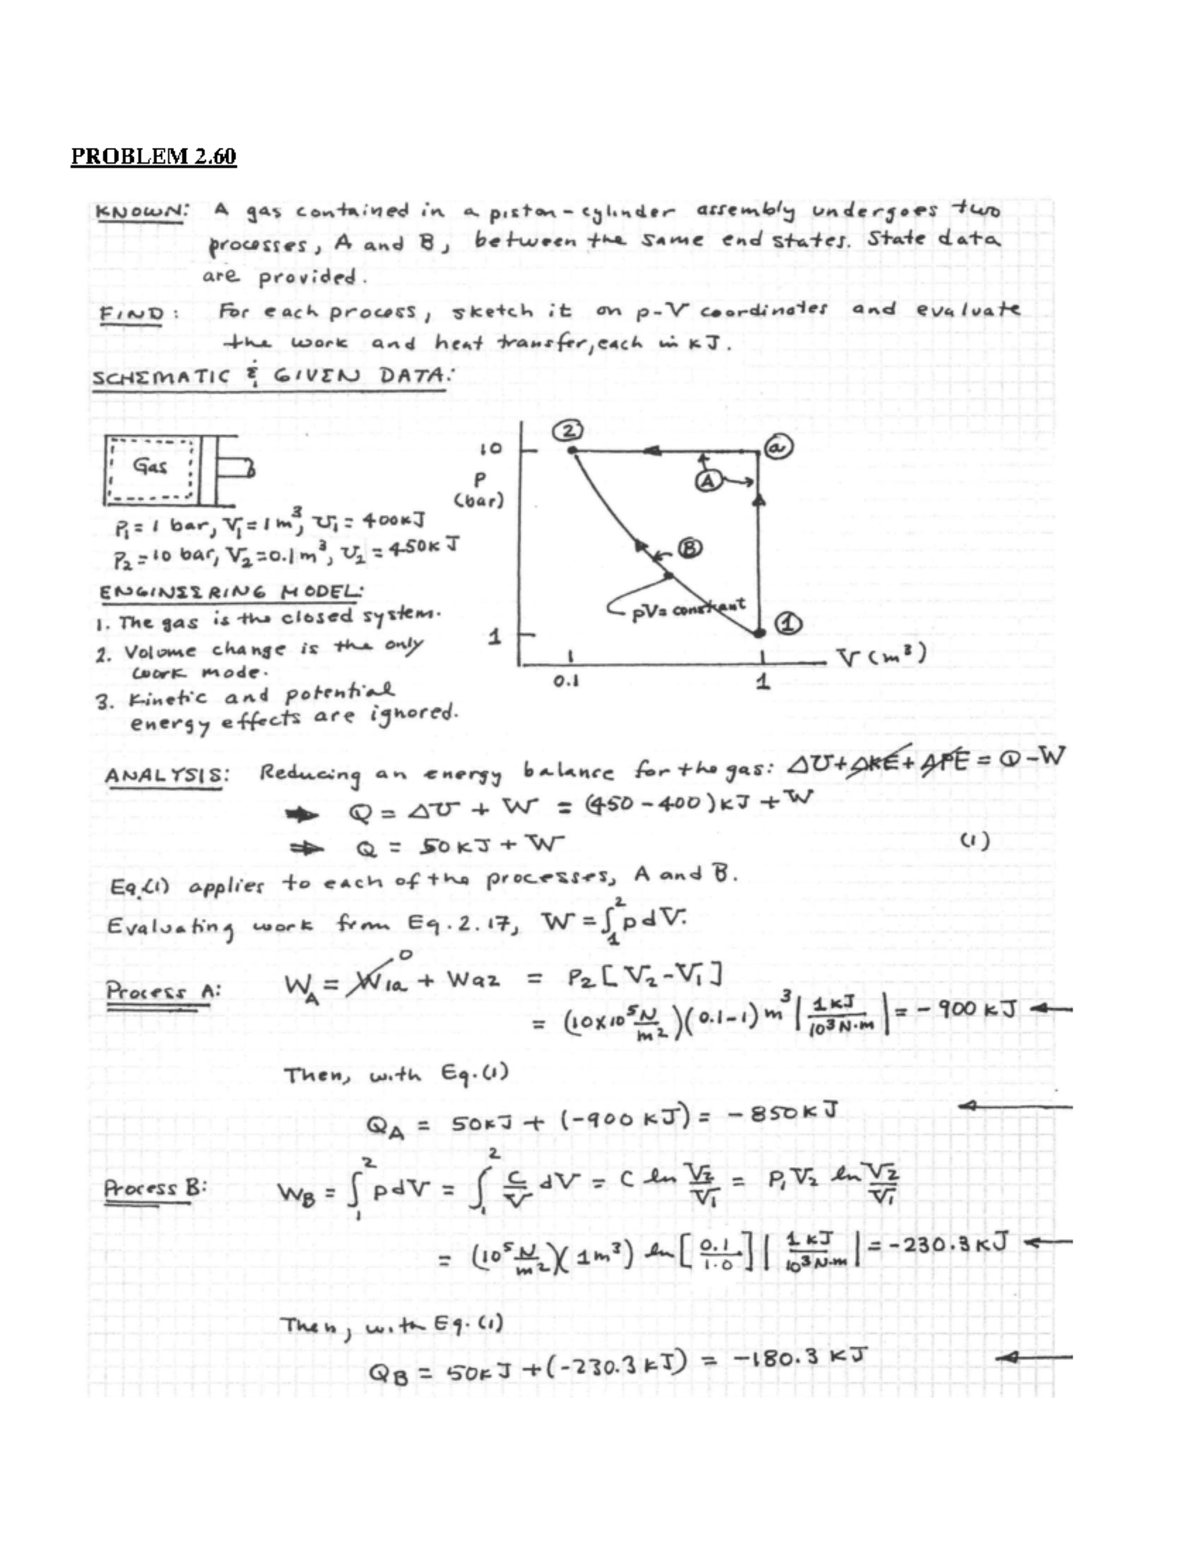 PROBLEM 2.60
KNOWN: A gas contained in a piston-cylinder assembly undergoes two
processes, A and B, between the same end states. State data
are provided.
FIND: For each process, sketch it on p-V coordinates and evaluate
the work and heat transfer, each in kJ.
SCHEMATIC & GIVEN DATA:
Gas
P₁ = 1 bar, V₁ = 1 m³, U₁ = 400 kJ
P₂ = 10 bar, V₂ = 0.1 m³, U₂ = 450 kJ
ENGINEERING MODEL:
1. The gas is the closed system.
2. Volume change is the only
work mode.
3. Kinetic and potential
energy effects are ignored.
2
10
a
P
(bar)
A
B
pV = constant
1
1
V (m³)
0.1
1
ANALYSIS: Reducing an energy balance for the gas: ΔU + ΔKE + ΔPE = Q - W
⇒ Q = ΔU + W = (450 - 400) kJ + W
⇒ Q = 50 kJ + W (1)
Eq.(1) applies to each of the processes, A and B.
Evaluating work from Eq. 2.17, W = ∫₁² p dV.
Process A: W_A = W₁ₐ⁰ + Wₐ₂ = P₂ [V₂ - V₁]
= (10 x 10⁵ N/m²)(0.1 - 1) m³ | 1 kJ / 10³ N·m | = - 900 kJ
Then, with Eq.(1)
Q_A = 50 kJ + (-900 kJ) = - 850 kJ
Process B: W_B = ∫₁² p dV = ∫₁² C/V dV = C ln V₂/V₁ = P₁ V₂ ln V₂/V₁
= (10⁵ N/m²)(1 m³) ln [0.1/1.0] | 1 kJ / 10³ N·m | = -230.3 kJ
Then, with Eq.(1)
Q_B = 50 kJ + (-230.3 kJ) = -180.3 kJ